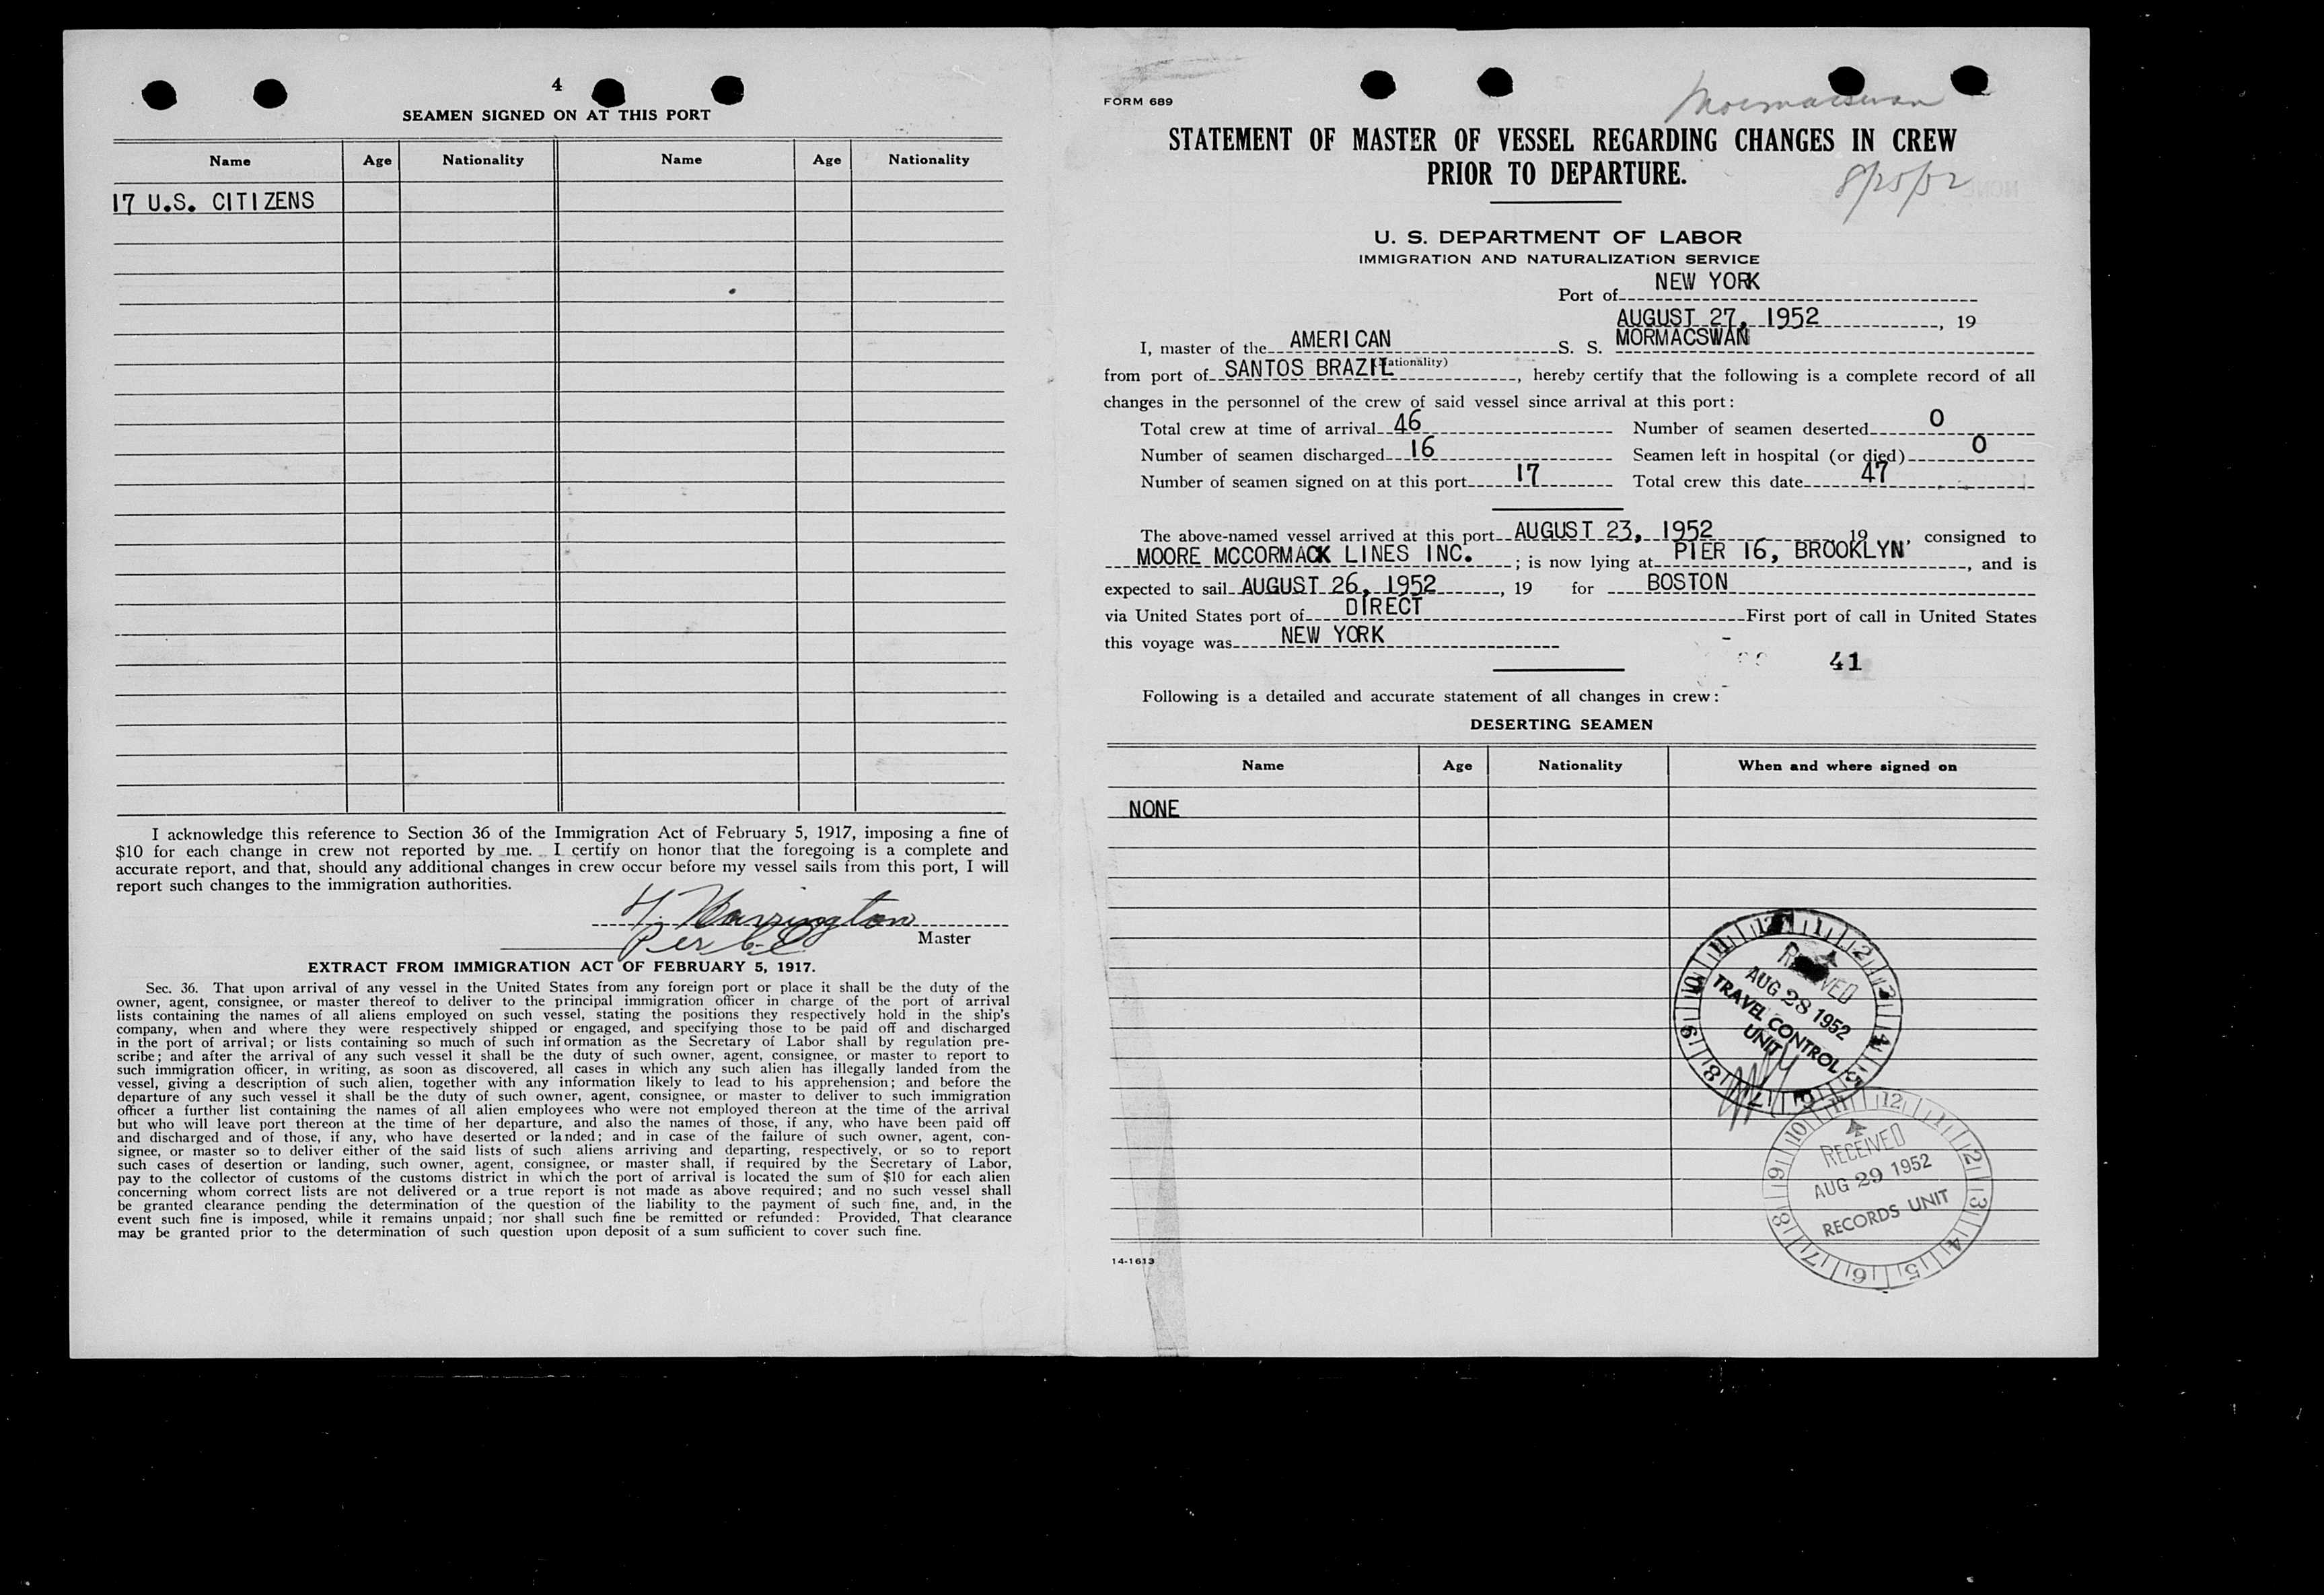 4
SEAMEN SIGNED ON AT THIS PORT
Name Age Nationality Name Age Nationality
17 U.S. CITIZENS
I acknowledge this reference to Section 36 of the Immigration Act of February 5, 1917, imposing a fine of
$10 for each change in crew not reported by me. I certify on honor that the foregoing is a complete and
accurate report, and that, should any additional changes in crew occur before my vessel sails from this port, I will
report such changes to the immigration authorities.
Per
Master
EXTRACT FROM IMMIGRATION ACT OF FEBRUARY 5, 1917.
Sec. 36. That upon arrival of any vessel in the United States from any foreign port or place it shall be the duty of the
owner, agent, consignee, or master thereof to deliver to the principal immigration officer in charge of the port of arrival
lists containing the names of all aliens employed on such vessel, stating the positions they respectively hold in the ship's
company, when and where they were respectively shipped or engaged, and specifying those to be paid off and discharged
in the port of arrival; or lists containing so much of such information as the Secretary of Labor shall by regulation pre-
scribe; and after the arrival of any such vessel it shall be the duty of such owner, agent, consignee, or master to report to
such immigration officer, in writing, as soon as discovered, all cases in which any such alien has illegally landed from the
vessel, giving a description of such alien, together with any information likely to lead to his apprehension; and before the
departure of any such vessel it shall be the duty of such owner, agent, consignee, or master to deliver to such immigration
officer a further list containing the names of all alien employees who were not employed thereon at the time of the arrival
but who will leave port thereon at the time of her departure, and also the names of those, if any, who have been paid off
and discharged and of those, if any, who have deserted or landed; and in case of the failure of such owner, agent, con-
signee, or master so to deliver either of the said lists of such aliens arriving and departing, respectively, or so to report
such cases of desertion or landing, such owner, agent, consignee, or master shall, if required by the Secretary of Labor,
pay to the collector of customs of the customs district in which the port of arrival is located the sum of $10 for each alien
concerning whom correct lists are not delivered or a true report is not made as above required; and no such vessel shall
be granted clearance pending the determination of the question of the liability to the payment of such fine, and, in the
event such fine is imposed, while it remains unpaid; nor shall such fine be remitted or refunded: Provided, That clearance
may be granted prior to the determination of such question upon deposit of a sum sufficient to cover such fine.
FORM 689
Mormacswan
STATEMENT OF MASTER OF VESSEL REGARDING CHANGES IN CREW
PRIOR TO DEPARTURE.
8/25/52
U. S. DEPARTMENT OF LABOR
IMMIGRATION AND NATURALIZATION SERVICE
Port of NEW YORK
AUGUST 27, 1952, 19
I, master of the AMERICAN S. S. MORMACSWAN
(Nationality)
from port of SANTOS BRAZIL, hereby certify that the following is a complete record of all
changes in the personnel of the crew of said vessel since arrival at this port:
Total crew at time of arrival 46 Number of seamen deserted 0
Number of seamen discharged 16 Seamen left in hospital (or died) 0
Number of seamen signed on at this port 17 Total crew this date 47
The above-named vessel arrived at this port AUGUST 23, 1952 19, consigned to
MOORE MCCORMACK LINES INC.; is now lying at PIER 16, BROOKLYN, and is
expected to sail AUGUST 26, 1952, 19 for BOSTON
via United States port of DIRECT First port of call in United States
this voyage was NEW YORK
41
Following is a detailed and accurate statement of all changes in crew:
DESERTING SEAMEN
Name Age Nationality When and where signed on
NONE
RECEIVED
AUG 28 1952
TRAVEL CONTROL
UNIT
12 1 2 3 4 5 6 7 8 9 10 11
RECEIVED
AUG 29 1952
RECORDS UNIT
12 1 2 3 4 5 6 7 8 9 10 11
14-1613